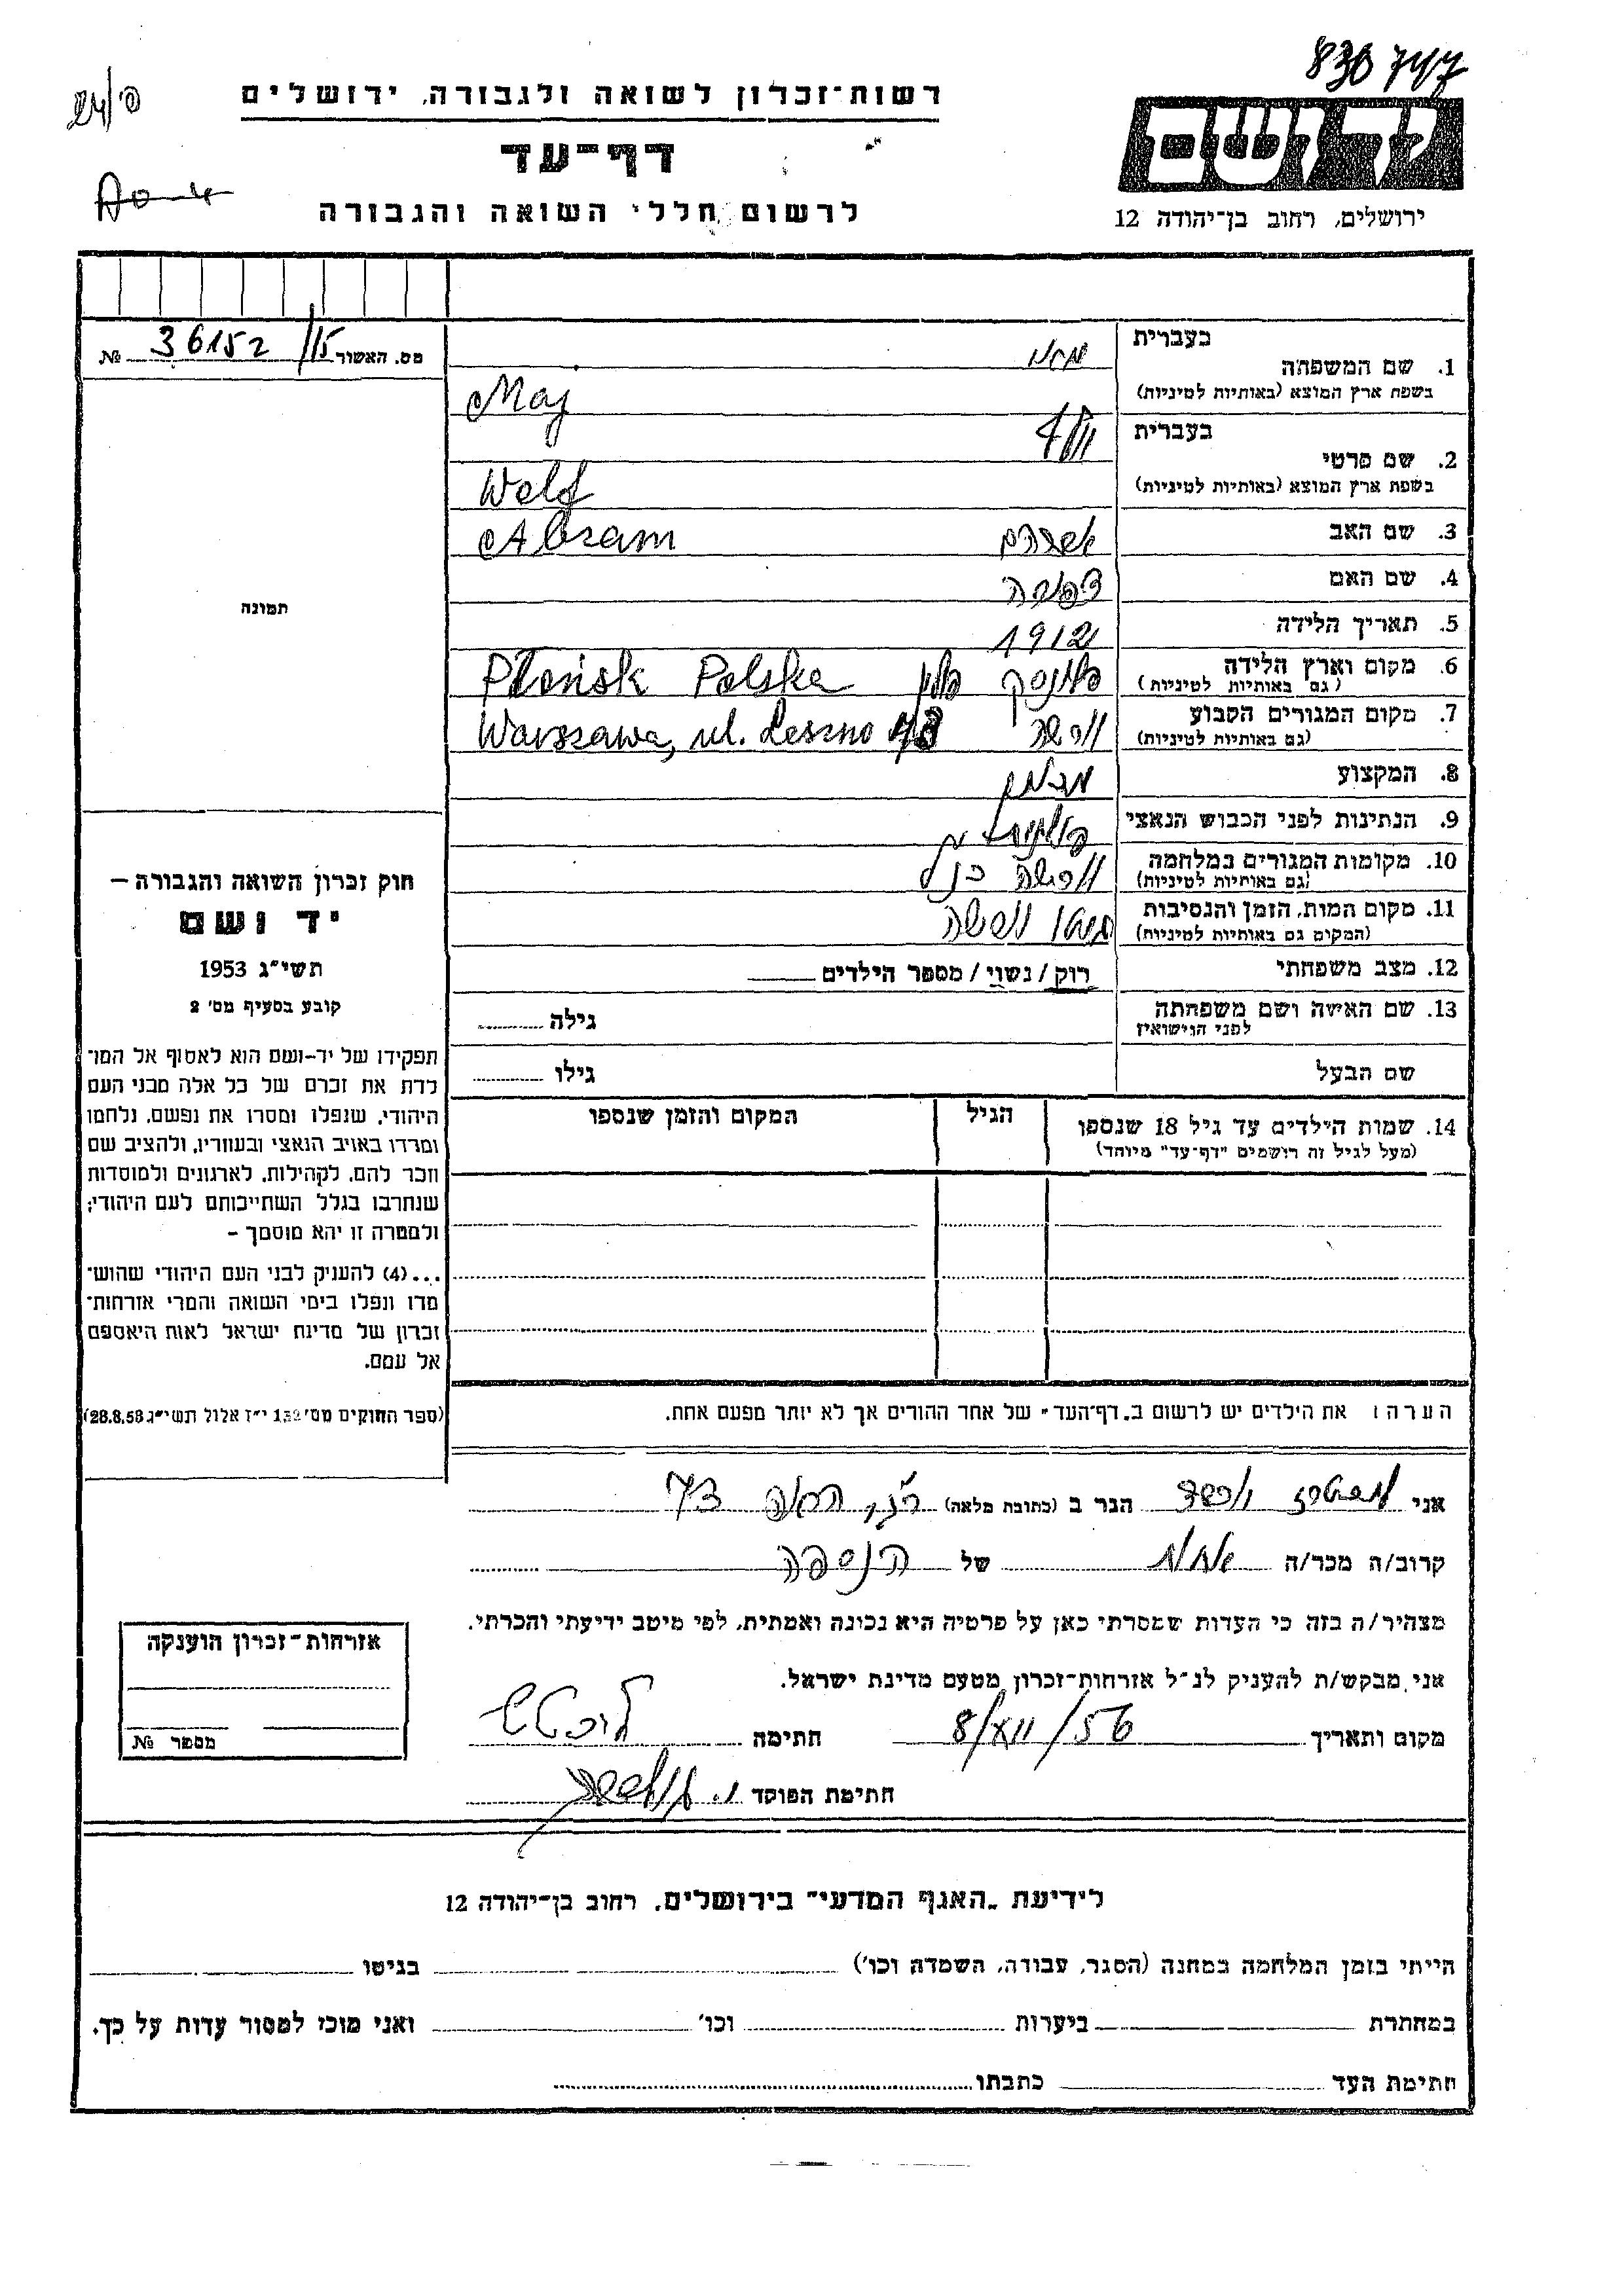 830747
24/פ'
רשות־זכרון לשואה ולגבורה, ירושלים
דף־עד
לרשום חללי השואה והגבורה
יד ושם
ירושלים, רחוב בן־יהודה 12
מס. האשור 15/ 36152 №
תמונה
בעברית
1. שם המשפחה
בשפת ארץ המוצא (באותיות לטיניות) Maj
בעברית
2. שם פרטי
בשפת ארץ המוצא (באותיות לטיניות) Welf
3. שם האב אברהם Abram
4. שם האם צפורה
5. תאריך הלידה 1912
6. מקום וארץ הלידה פלונסק פולין Płońsk Polska
(גם באותיות לטיניות)
7. מקום המגורים הקבוע ורשה Warszawa, ul. Leszno
(גם באותיות לטיניות)
8. המקצוע
9. הנתינות לפני הכבוש הנאצי פולנית
10. מקומות המגורים במלחמה ורשה כנ"ל
(גם באותיות לטיניות)
11. מקום המות, הזמן והנסיבות גיטו ורשה
(המקום גם באותיות לטיניות)
12. מצב משפחתי רוק / נשוי / מספר הילדים
13. שם האישה ושם משפחתה
לפני הנישואין
גילה
שם הבעל גילו
14. שמות הילדים עד גיל 18 שנספו הגיל המקום והזמן שנספו
(מעל לגיל זה רושמים "דף־עד" מיוחד)
הערה: את הילדים יש לרשום ב„דף־העד" של אחד ההורים אך לא יותר מפעם אחת.
חוק זכרון השואה והגבורה –
יד ושם
תשי"ג 1953
קובע בסעיף מס' 2
תפקידו של יד-ושם הוא לאסוף אל המו־
לדת את זכרם של כל אלה מבני העם
היהודי, שנפלו ומסרו את נפשם, נלחמו
ומרדו באויב הנאצי ובעוזריו, ולהציב שם
וזכר להם, לקהילות, לארגונים ולמוסדות
שנחרבו בגלל השתייכותם לעם היהודי;
ולמטרה זו יהא מוסמך –
...(4) להעניק לבני העם היהודי שהוש־
מדו ונפלו בימי השואה והמרי אזרחות־
זכרון של מדינת ישראל לאות היאספם
אל עמם.
(ספר החוקים מס' 132 י"ז אלול תשי"ג 28.8.53)
אני הגר ב (כתובת מלאה)
קרוב/ה מכר/ה אחות של הנספה
מצהיר/ה בזה כי העדות שמסרתי כאן על פרטיה היא נכונה ואמתית, לפי מיטב ידיעתי והכרתי.
אני מבקש/ת להעניק לנ"ל אזרחות־זכרון מטעם מדינת ישראל.
מקום ותאריך 8/XII/56 חתימה
חתימת הפוקד
אזרחות־זכרון הוענקה
מספר №
לידיעת „האגף המדעי" בירושלים, רחוב בן־יהודה 12
הייתי בזמן המלחמה במחנה (הסגר, עבודה, השמדה וכו') בגיטו
במחתרת ביערות וכו' ואני מוכן למסור עדות על כך.
חתימת העד כתבתו